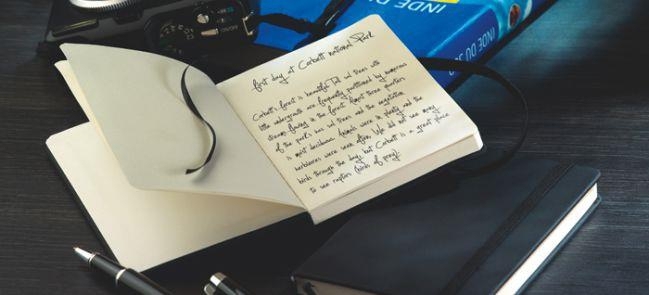 first day at Corbett national Park
Corbett's forest is beautiful. Tall sal trees with
little undergrowth are frequently partitioned by numerous
streams flowing in the forest. Almost three quarters
of the park has sal trees and the vegetation
is moist deciduous. Animals were in plenty and the
herbivores were seen often. We did not see many
birds through the day, but Corbett is a great place
to see raptors (birds of prey).
INDE DU
INDE DU SU